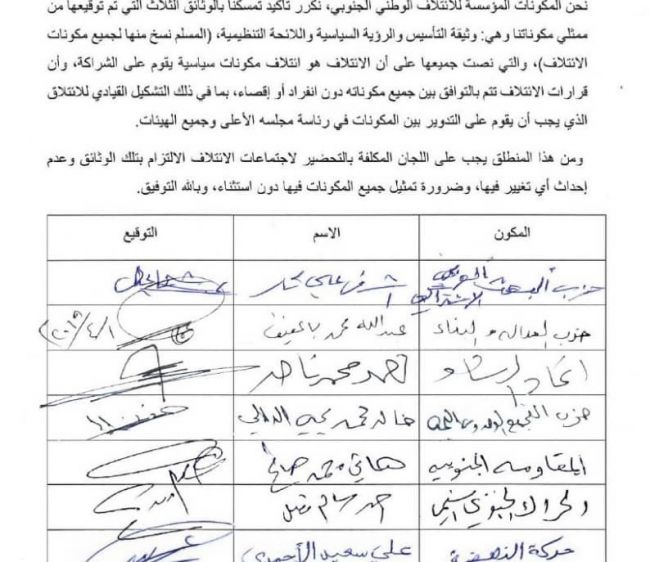 نحن المكونات المؤسسة للائتلاف الوطني الجنوبي، نكرر تأكيد تمسكنا بالوثائق الثلاث التي تم توقيعها من
ممثلي مكوناتنا وهي: وثيقة التأسيس والرؤية السياسية واللائحة التنظيمية، (المسلم نسخ منها لجميع مكونات
الائتلاف)، والتي نصت جميعها على أن الائتلاف هو ائتلاف مكونات سياسية يقوم على الشراكة، وأن
قرارات الائتلاف تتم بالتوافق بين جميع مكوناته دون انفراد أو إقصاء، بما في ذلك التشكيل القيادي للائتلاق
الذي يجب أن يقوم على التدوير بين المكونات في رئاسة مجلسه الأعلى وجميع الهيئات.
ومن هذا المنطلق يجب على اللجان المكلفة بالتحضير لاجتماعات الائتلاف الالتزام بتلك الوثائق وعدم
إحداث أي تغيير فيها، وضرورة تمثيل جميع المكونات فيها دون استثناء، وبالله التوفيق.
المكون الاسم التوقيع
حزب البعث العربي الاشتراكي اشرف علي
حزب العدالة و البناء عبدالله محمد ٢٠١٩/٤/١
اتحاد الرشاد محمد ناصر
حزب التجمع خالد محمد يحيى
المقاومه الجنوبيه هاني محمد
الحراك الجنوبي السلمي احمد سالم فضل
حركة النهضة علي سعيد الأحمدي